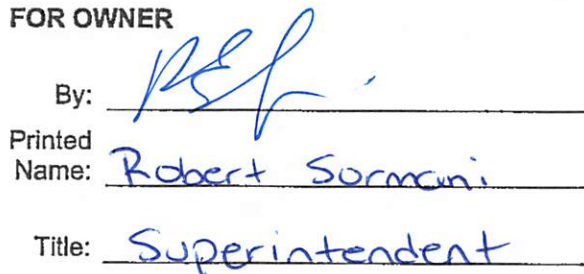 FOR OWNER
By:
Printed
Name: Robert Sormani
Title: Superintendent